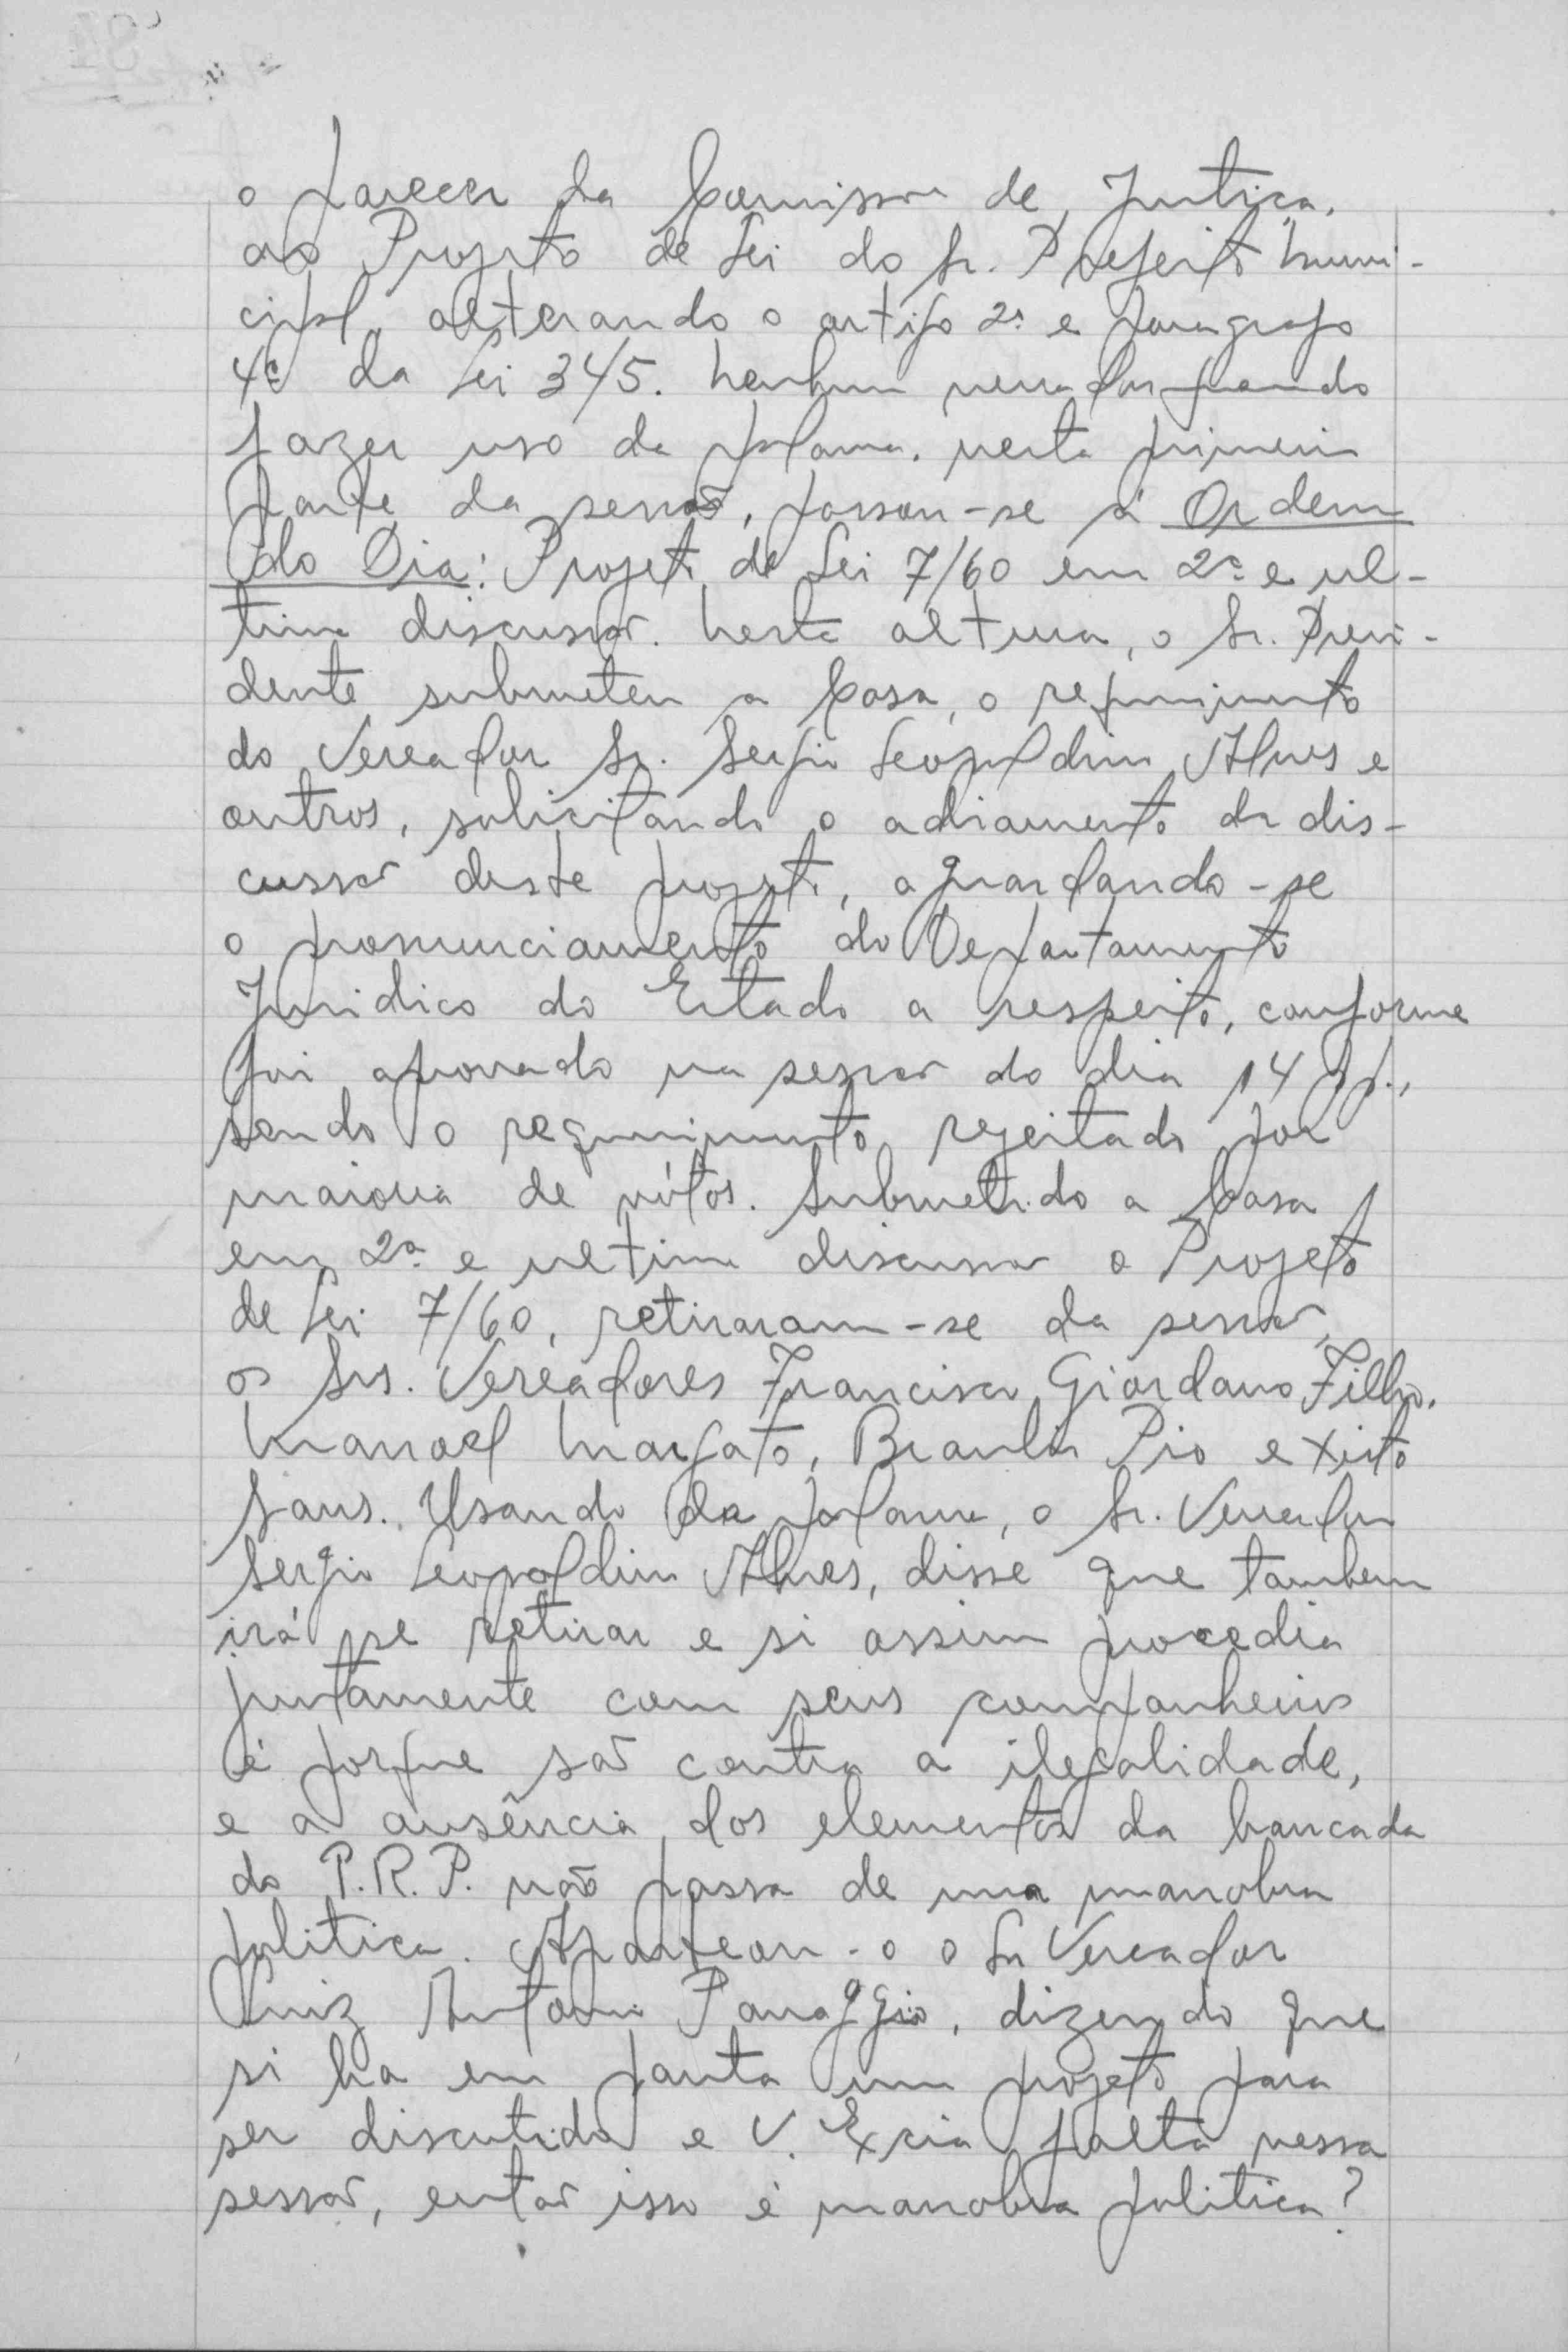 o parecer da Comissão de Justiça,
ao Projeto de Lei do Sr. Prefeito Muni-
cipal, alterando o artigo 2º e paragrafo
4º da Lei 345. Nenhum vereador querendo
fazer uso da palavra, nesta primeira
parte da sessão, passou-se á Ordem
do Dia: Projeto de Lei 7/60 em 2ª e ul-
tima discussão. Nesta altura, o Sr. Presi-
dente submeteu a Casa, o requerimento
do Vereador Sr. Sergio Leopoldino Alves e
outros, solicitando o adiamento da dis-
cussão deste projeto, aguardando-se
o pronunciamento do Departamento
Juridico do Estado a respeito, conforme
foi aprovado na sessão do dia 14 pp.,
sendo o requerimento rejeitado por
maioria de vótos. Submetido a Casa
em 2ª e ultima discussão o Projeto
de Lei 7/60, retiraram-se da sessão,
os Srs. Vereadores Francisco Giordano Filho,
Manoel Margato, Braulio Pio e Xisto
Sans. Usando da palavra, o Sr. Vereador
Sergio Leopoldino Alves, disse que tambem
irá se retirar e si assim procedia
juntamente com seus companheiros
é porque são contra a ilegalidade,
e a ausência dos elementos da bancada
do P.R.P. não passa de uma manobra
politica. Aparteou-o o Sr Vereador
Luiz Antonio Panaggio, dizendo que
si ha em pauta um projeto para
ser discutido e V. Excia falta nessa
sessão, então isso é manobra politica?